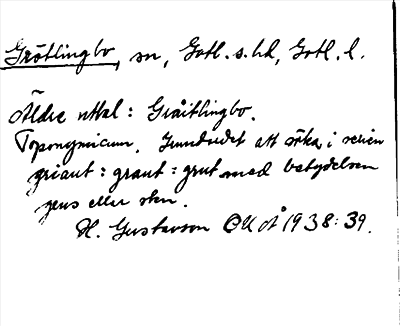 Grötlingbo, sn, Gotl. s. hd, Gotl. l.
Äldre uttal: Gräitlingbo.
Toponymicum. Grundordet att söka i serien
griaut : graut : grut med betydelsen
grus eller sten.
H. Gustavson OUÅ 1938: 39.